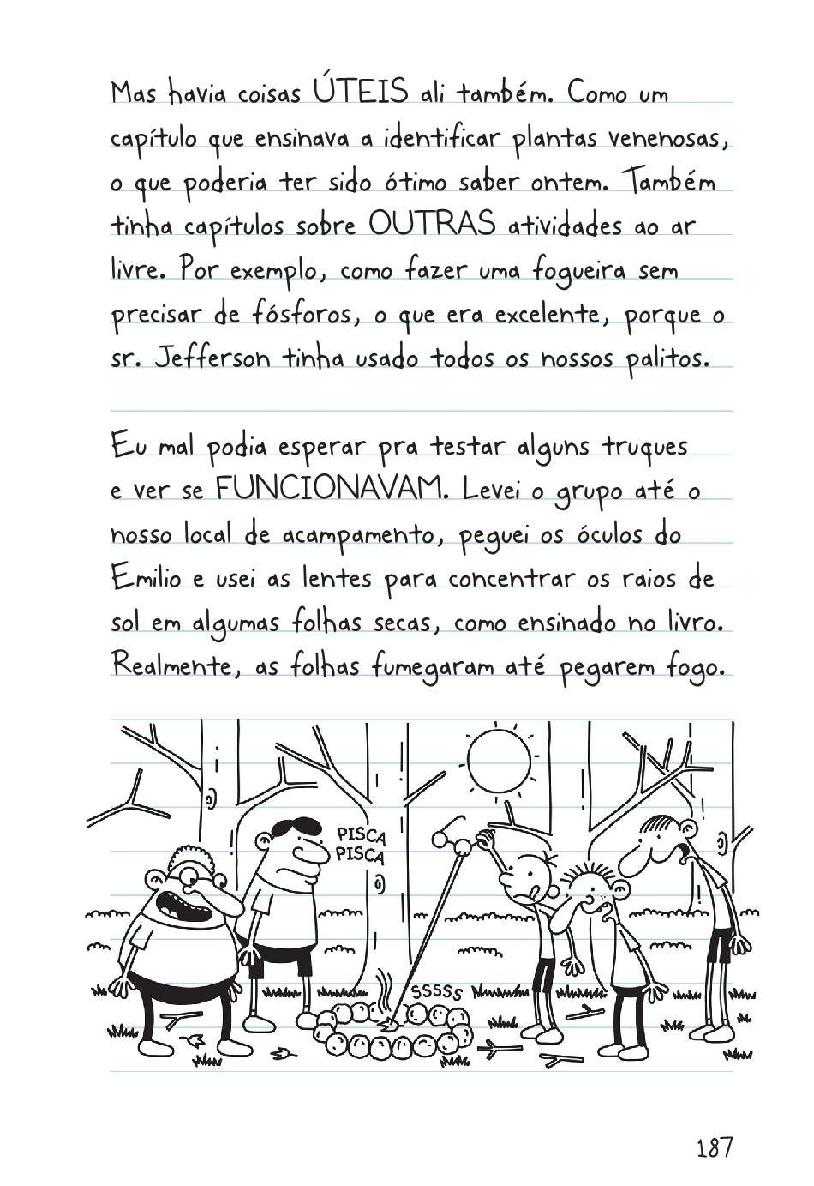 Mas havia coisas ÚTEIS ali também. Como um
capítulo que ensinava a identificar plantas venenosas,
o que poderia ter sido ótimo saber ontem. Também
tinha capítulos sobre OUTRAS atividades ao ar
livre. Por exemplo, como fazer uma fogueira sem
precisar de fósforos, o que era excelente, porque o
sr. Jefferson tinha usado todos os nossos palitos.
Eu mal podia esperar pra testar alguns truques
e ver se FUNCIONAVAM. Levei o grupo até o
nosso local de acampamento, peguei os óculos do
Emilio e usei as lentes para concentrar os raios de
sol em algumas folhas secas, como ensinado no livro.
Realmente, as folhas fumegaram até pegarem fogo.
PISCA
PISCA
SSSSS
187